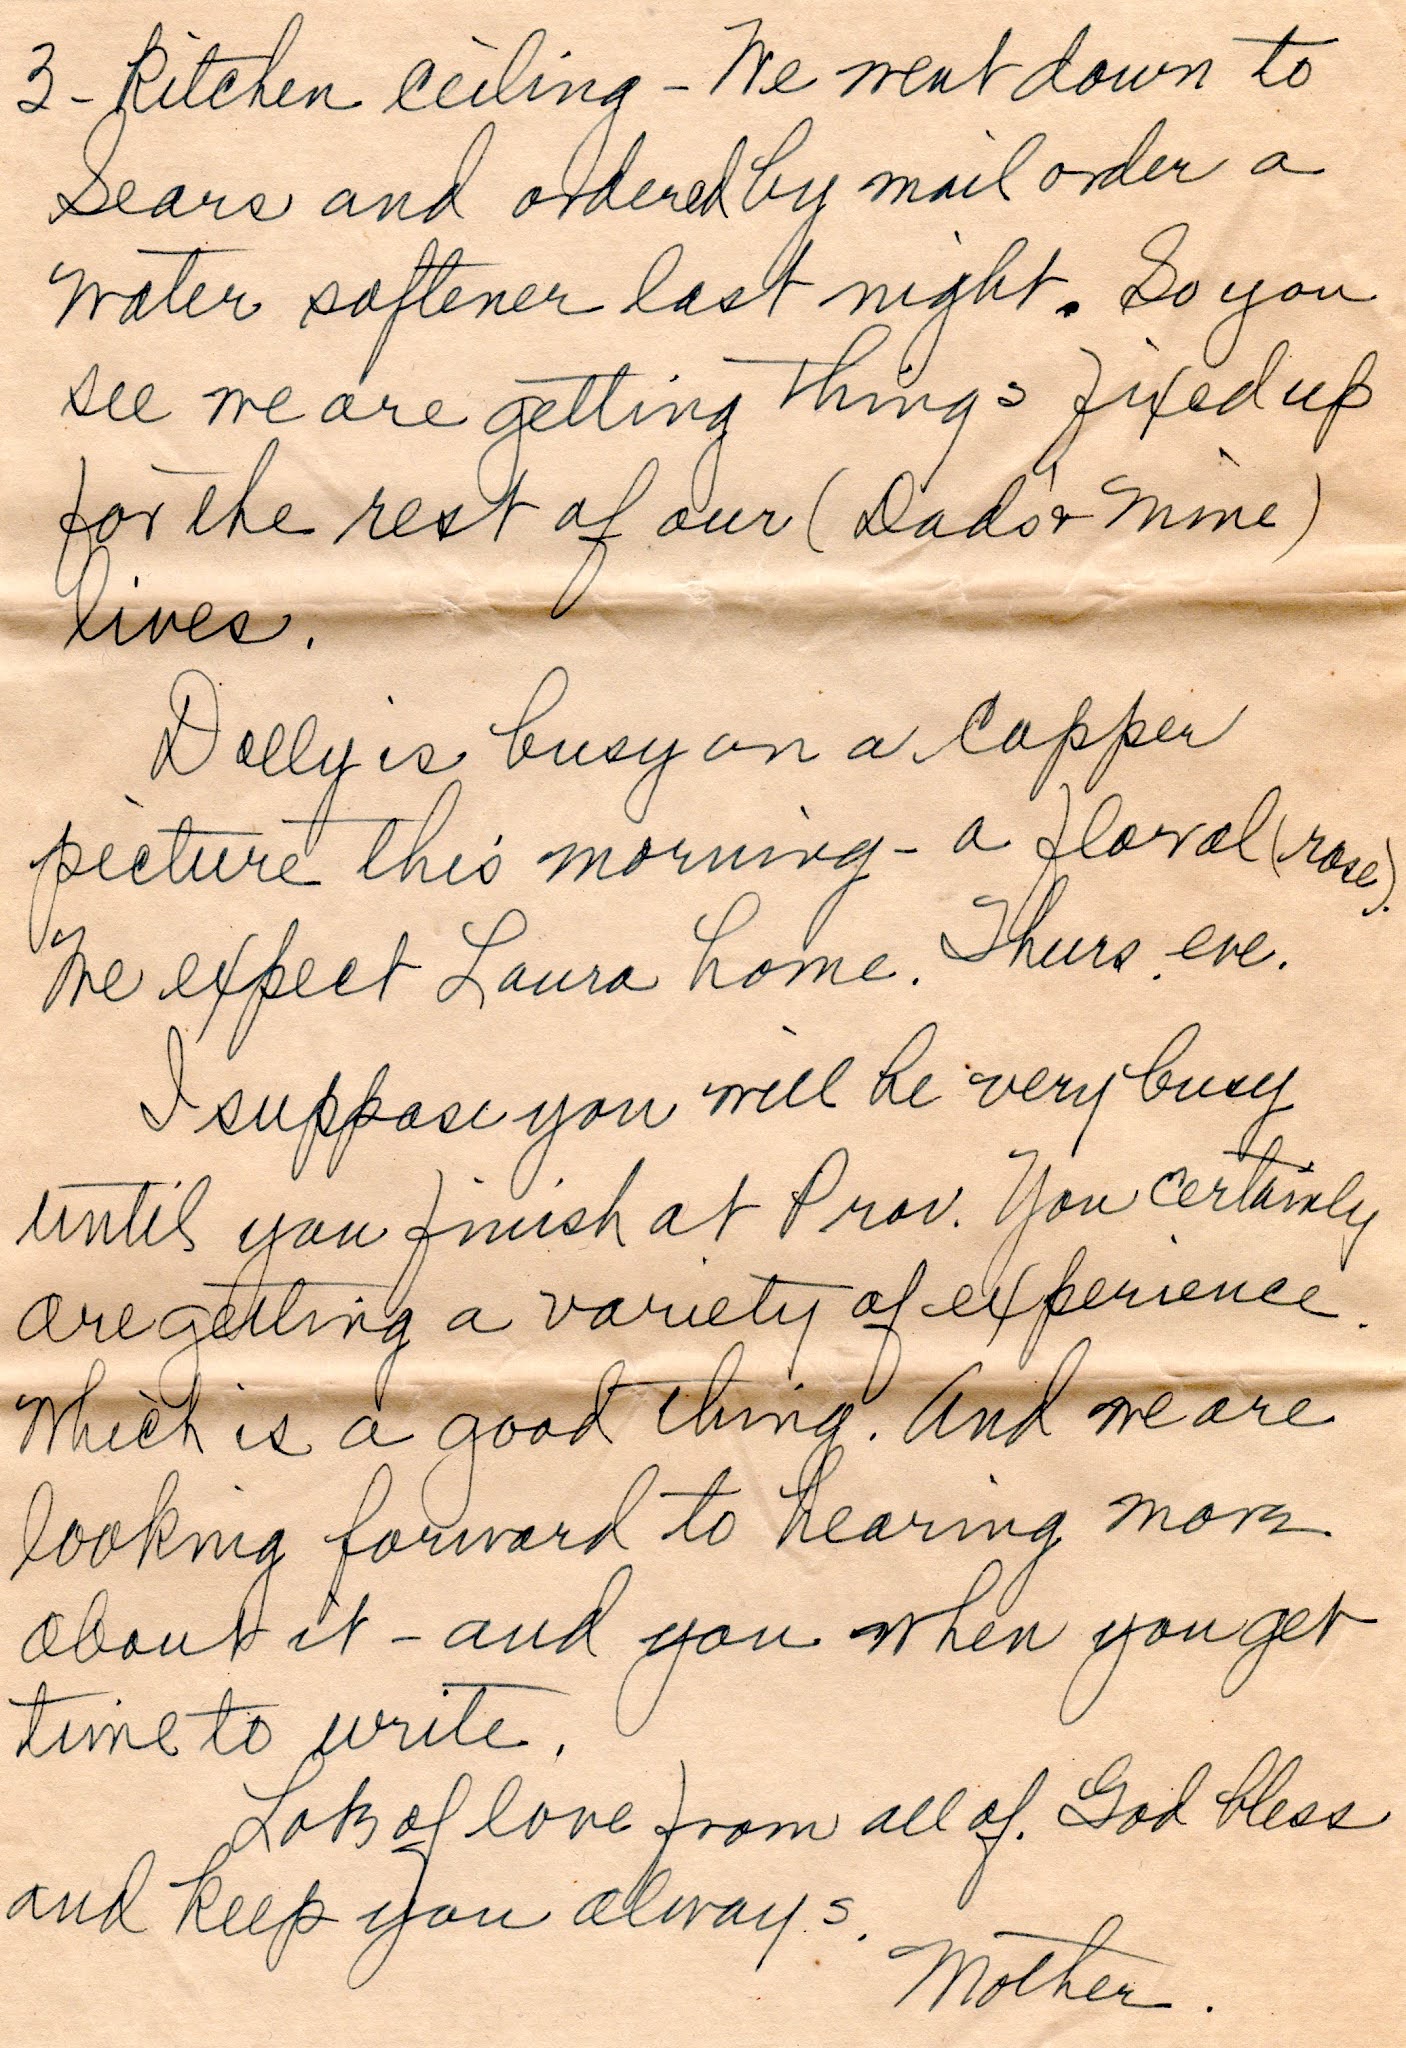 3 - Kitchen ceiling - We went down to
Sears and ordered by mail order a
water softener last night. So you
see we are getting things fixed up
for the rest of our (Dad's & Mine)
lives.
Dolly is busy on a Copper
picture this morning - a floral (rose).
We expect Laura home. Thurs. eve.
I suppose you will be very busy
until you finish at Prov. You certainly
are getting a variety of experience.
Which is a good thing. And we are
looking forward to hearing more
about it - and you when you get
time to write.
Lots of love from all of. God bless
and keep you always.
Mother.